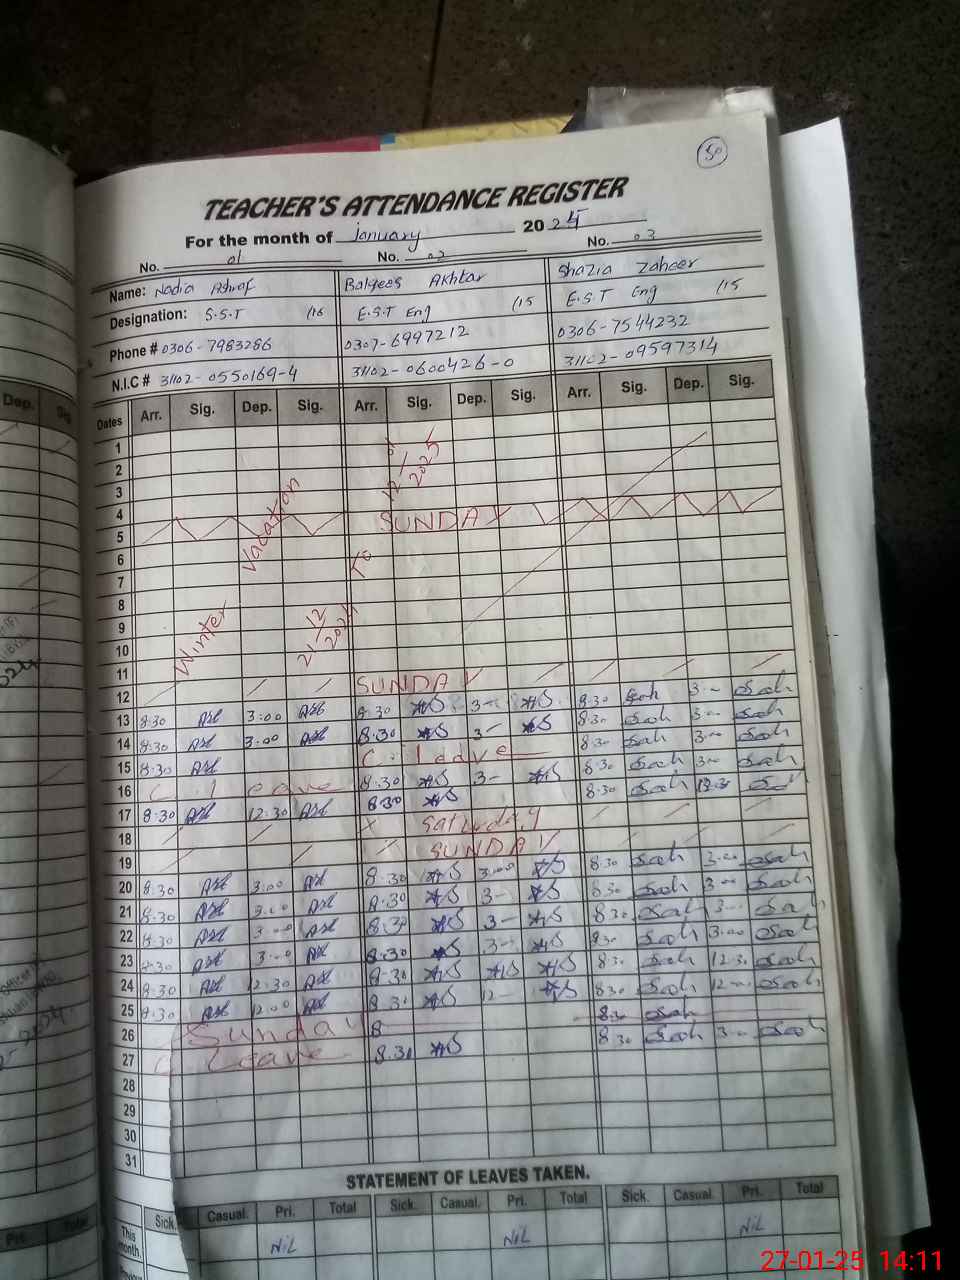 50
TEACHER'S ATTENDANCE REGISTER
For the month of january 2025
No. 01 No. 02 No. 03
Name: Nadia Ashraf Balqees Akhtar Shazia Zaheer
Designation: S.S.T /16 E.S.T Eng /15 E.S.T Eng /15
Phone # 0306-7983286 0307-6997212 0306-7544232
N.I.C # 31102-0550169-4 31102-0600426-0 31102-09597314
Dates Arr. Sig. Dep. Sig. Arr. Sig. Dep. Sig. Arr. Sig. Dep. Sig.
1
2
3
4
5 SUNDAY
Winter Vacation 21/12 2024 To 12/01 2025
6
7
8
9
10
11
12 SUNDAY
13 8:30 3:00 8:30 3- 8:30 3-
14 8:30 3:00 8:30 3- 8:30 3-
15 8:30 C. leave 8:30 3-
16 C. leave 8:30 3- 8:30 3-
17 8:30 12:30 8:30 8:30 12:30
18 Saturday
19 SUNDAY
20 8:30 3:00 8:30 3:00 8:30 3:00
21 8:30 3:00 8:30 3- 8:30 3-
22 8:30 3:00 8:30 3- 8:30 3-
23 8:30 3:00 8:30 3- 8:30 3:00
24 8:30 12:30 8:30 8:30 12:30
25 8:30 12:00 8:30 12- 8:30 12-
26 Sunday 8 8:30
27 C. Leave 8:30 8:30 3:00
28
29
30
31
STATEMENT OF LEAVES TAKEN.
Sick. Casual. Pri. Total Sick. Casual. Pri. Total Sick. Casual. Pri. Total
This month. NiL NiL NiL
27-01-25 14:11